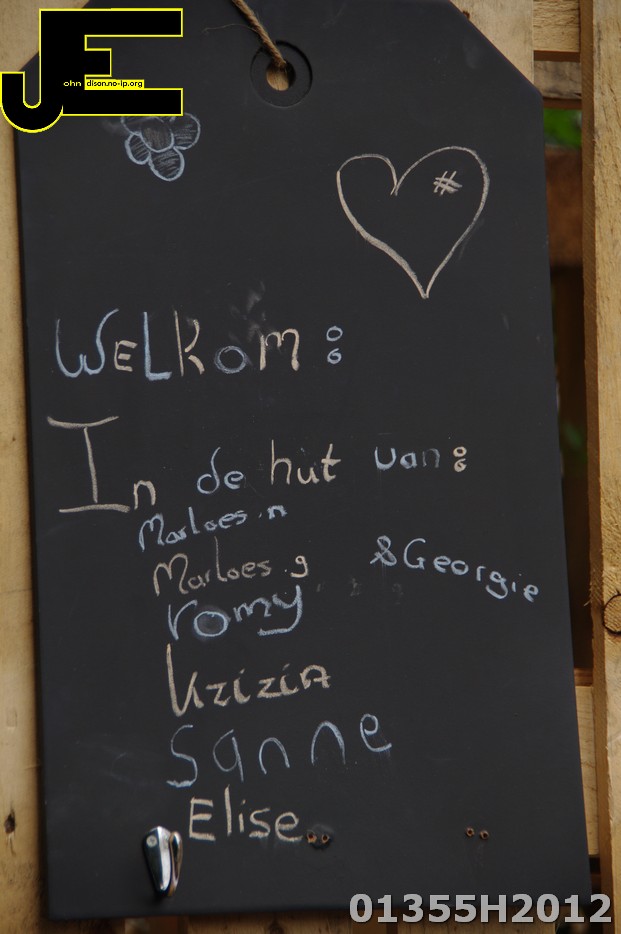 JE
ohn dison.no-ip.org
#
WELKOM:
In de hut van:
Marloes.n
Marloes.g &Georgie
romy
Kzizia
Sanne
Elise..
01355H2012